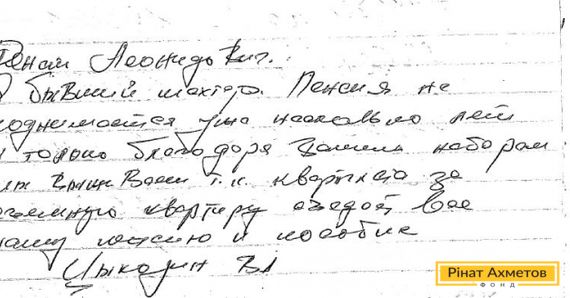 Ренат Леонидович.
бывший шахтёр. Пенсия не
поднимается уже несколько лет
и только благодаря Вашим наборам
мы выживаем т.к. квартплата за
квартиру съедает всю
нашу пенсию и пособие
Рінат Ахметов
ФОНД